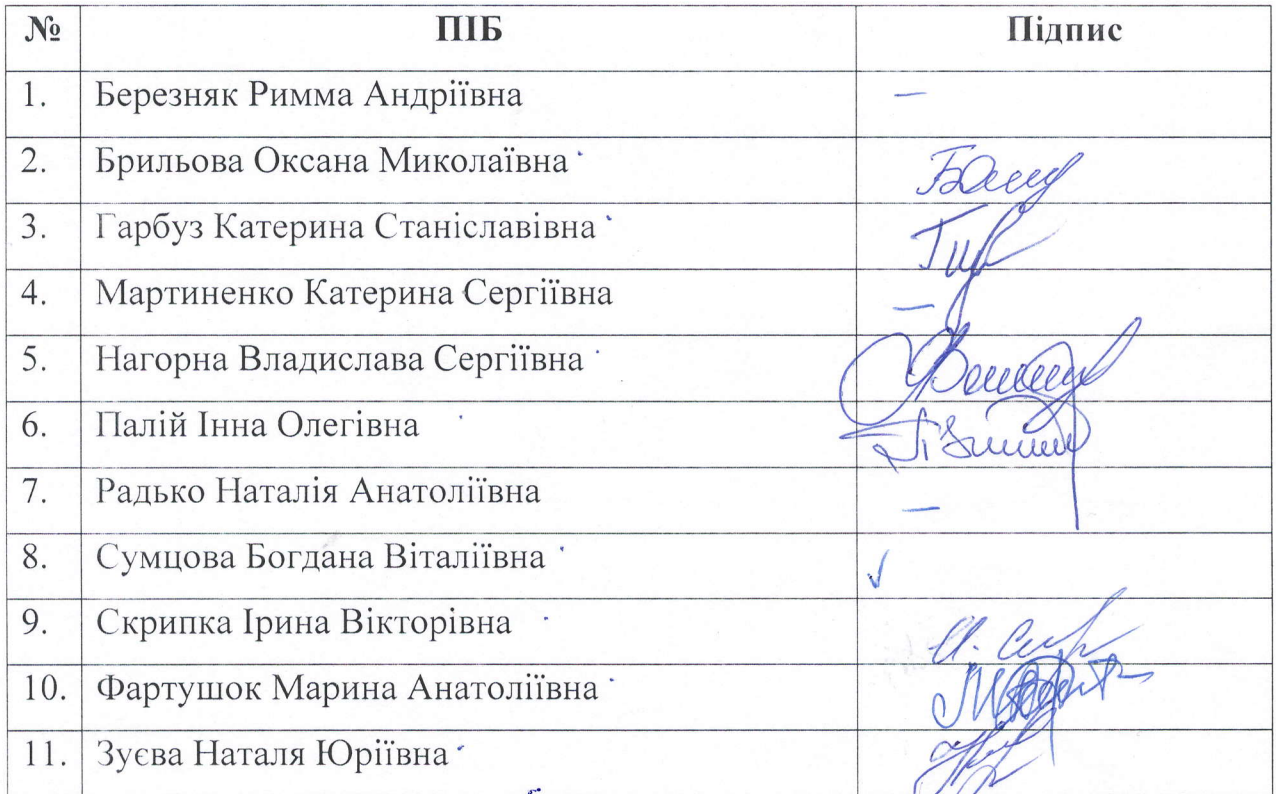 № ПІБ Підпис
1. Березняк Римма Андріївна –
2. Брильова Оксана Миколаївна
3. Гарбуз Катерина Станіславівна
4. Мартиненко Катерина Сергіївна –
5. Нагорна Владислава Сергіївна
6. Палій Інна Олегівна
7. Радько Наталія Анатоліївна –
8. Сумцова Богдана Віталіївна ✓
9. Скрипка Ірина Вікторівна
10. Фартушок Марина Анатоліївна
11. Зуєва Наталя Юріївна